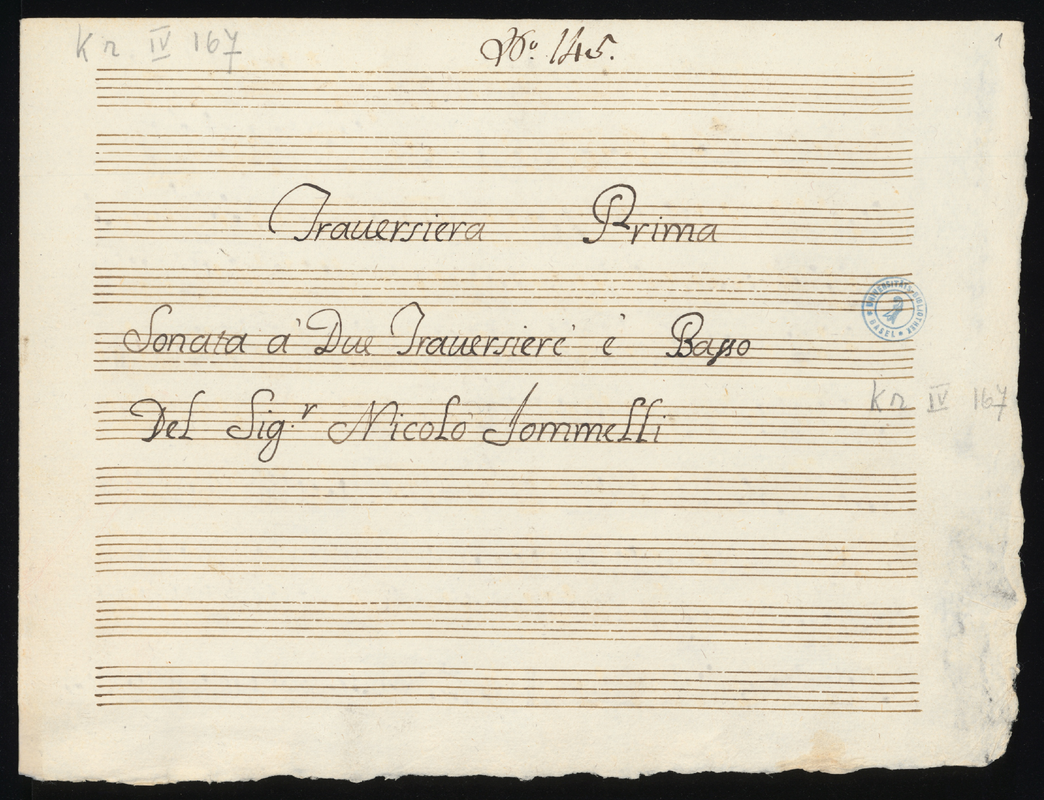 kr IV 167
No. 145.
1
Trauersiera Prima
Sonata a' Due Trauersiere' e' Basso
UNIVERSITÄTSBIBLIOTHEK BASEL
kr IV 167
Del Sig.r Nicolo' Jommelli